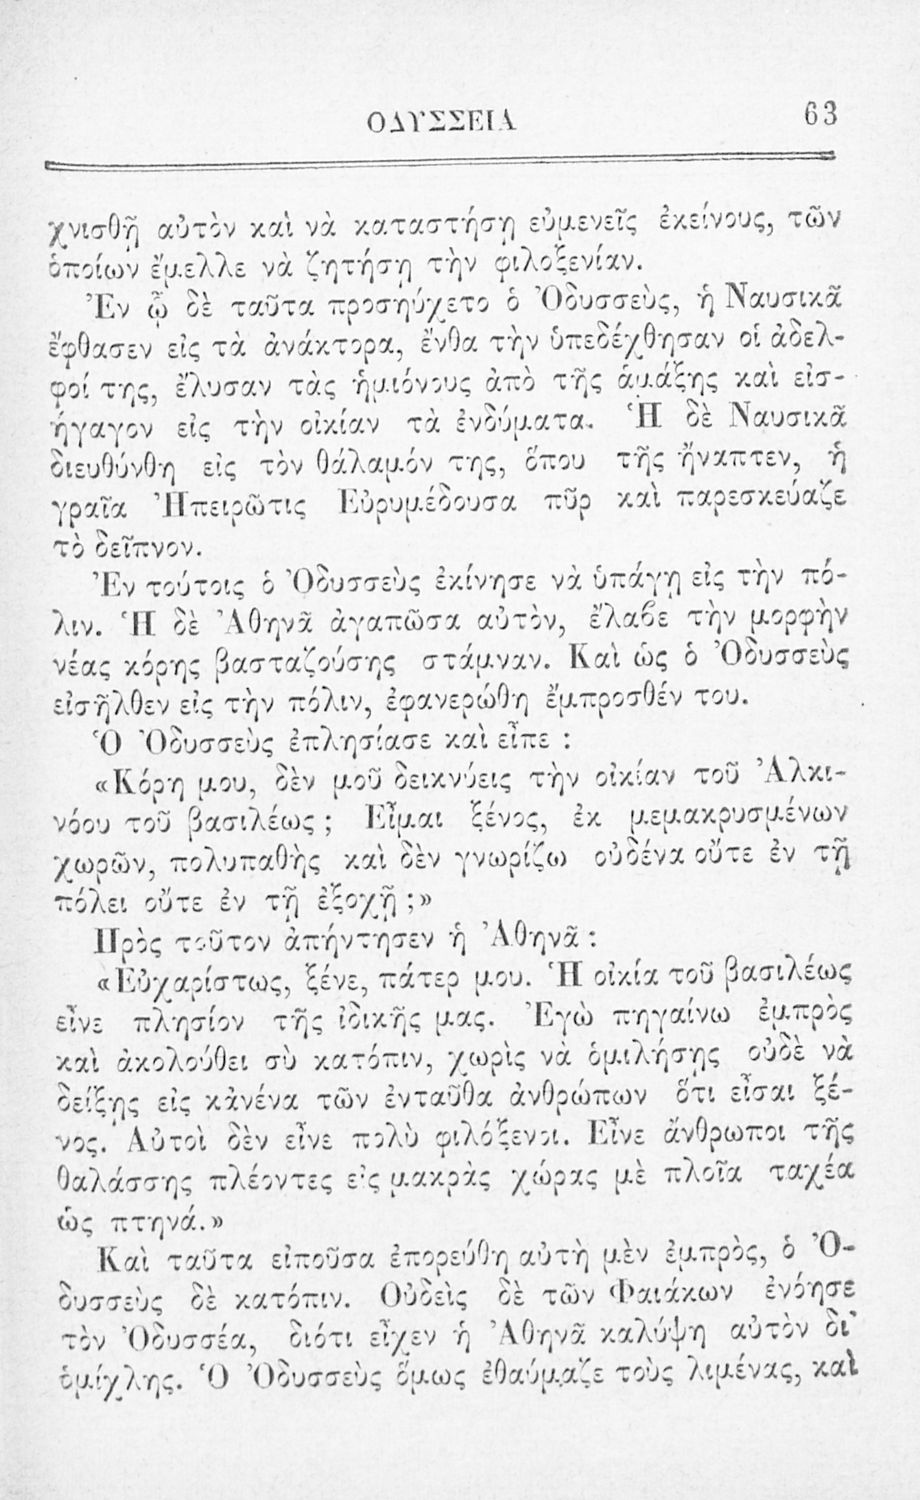 ΟΔΥΣΣΕΙΑ 63
χνισθῇ αὐτὸν καὶ νὰ καταστήσῃ εὐμενεῖς ἐκείνους, τῶν
ὁποίων ἔμελλε νὰ ζητήσῃ τὴν φιλοξενίαν.
Ἐν ᾧ δὲ ταῦτα προσηύχετο ὁ Ὀδυσσεὺς, ἡ Ναυσικᾶ
ἔφθασεν εἰς τὰ ἀνάκτορα, ἔνθα τὴν ὑπεδέχθησαν οἱ ἀδελ-
φοί της, ἔλυσαν τὰς ἡμιόνους ἀπὸ τῆς ἁμάξης καὶ εἰσ-
ήγαγον εἰς τὴν οἰκίαν τὰ ἐνδύματα. Ἡ δὲ Ναυσικᾶ
διευθύνθη εἰς τὸν θάλαμόν της, ὅπου τῆς ἤναπτεν, ἡ
γραῖα Ἠπειρῶτις Εὐρυμέδουσα πῦρ καὶ παρεσκεύαζε
τὸ δεῖπνον.
Ἐν τούτοις ὁ Ὀδυσσεὺς ἐκίνησε νὰ ὑπάγῃ εἰς τὴν πό-
λιν. Ἡ δὲ Ἀθηνᾶ ἀγαπῶσα αὐτὸν, ἔλαβε τὴν μορφὴν
νέας κόρης βασταζούσης στάμναν. Καὶ ὡς ὁ Ὀδυσσεὺς
εἰσῆλθεν εἰς τὴν πόλιν, ἐφανερώθη ἔμπροσθέν του.
Ὁ Ὀδυσσεὺς ἐπλησίασε καὶ εἶπε :
«Κόρη μου, δὲν μοῦ δεικνύεις τὴν οἰκίαν τοῦ Ἀλκι-
νόου τοῦ βασιλέως ; Εἶμαι ξένος, ἐκ μεμακρυσμένων
χωρῶν, πολυπαθὴς καὶ δὲν γνωρίζω οὐδένα οὔτε ἐν τῇ
πόλει οὔτε ἐν τῇ ἐξοχῇ ;»
Πρὸς τοῦτον ἀπήντησεν ἡ Ἀθηνᾶ :
«Εὐχαρίστως, ξένε, πάτερ μου. Ἡ οἰκία τοῦ βασιλέως
εἶνε πλησίον τῆς ἰδικῆς μας. Ἐγὼ πηγαίνω ἐμπρὸς
καὶ ἀκολούθει σὺ κατόπιν, χωρὶς νὰ ὁμιλήσῃς οὐδὲ νὰ
δείξῃς εἰς κἀνένα τῶν ἐνταῦθα ἀνθρώπων ὅτι εἶσαι ξέ-
νος. Αὐτοὶ δὲν εἶνε πολὺ φιλόξενοι. Εἶνε ἄνθρωποι τῆς
θαλάσσης πλέοντες εἰς μακρὰς χώρας μὲ πλοῖα ταχέα
ὡς πτηνά.»
Καὶ ταῦτα εἰποῦσα ἐπορεύθη αὐτὴ μὲν ἐμπρὸς, ὁ Ὀ-
δυσσεὺς δὲ κατόπιν. Οὐδεὶς δὲ τῶν Φαιάκων ἐνόησε
τὸν Ὀδυσσέα, διότι εἶχεν ἡ Ἀθηνᾶ καλύψῃ αὐτὸν δι'
ὁμίχλης. Ὁ Ὀδυσσεὺς ὅμως ἐθαύμαζε τοὺς λιμένας, καὶ